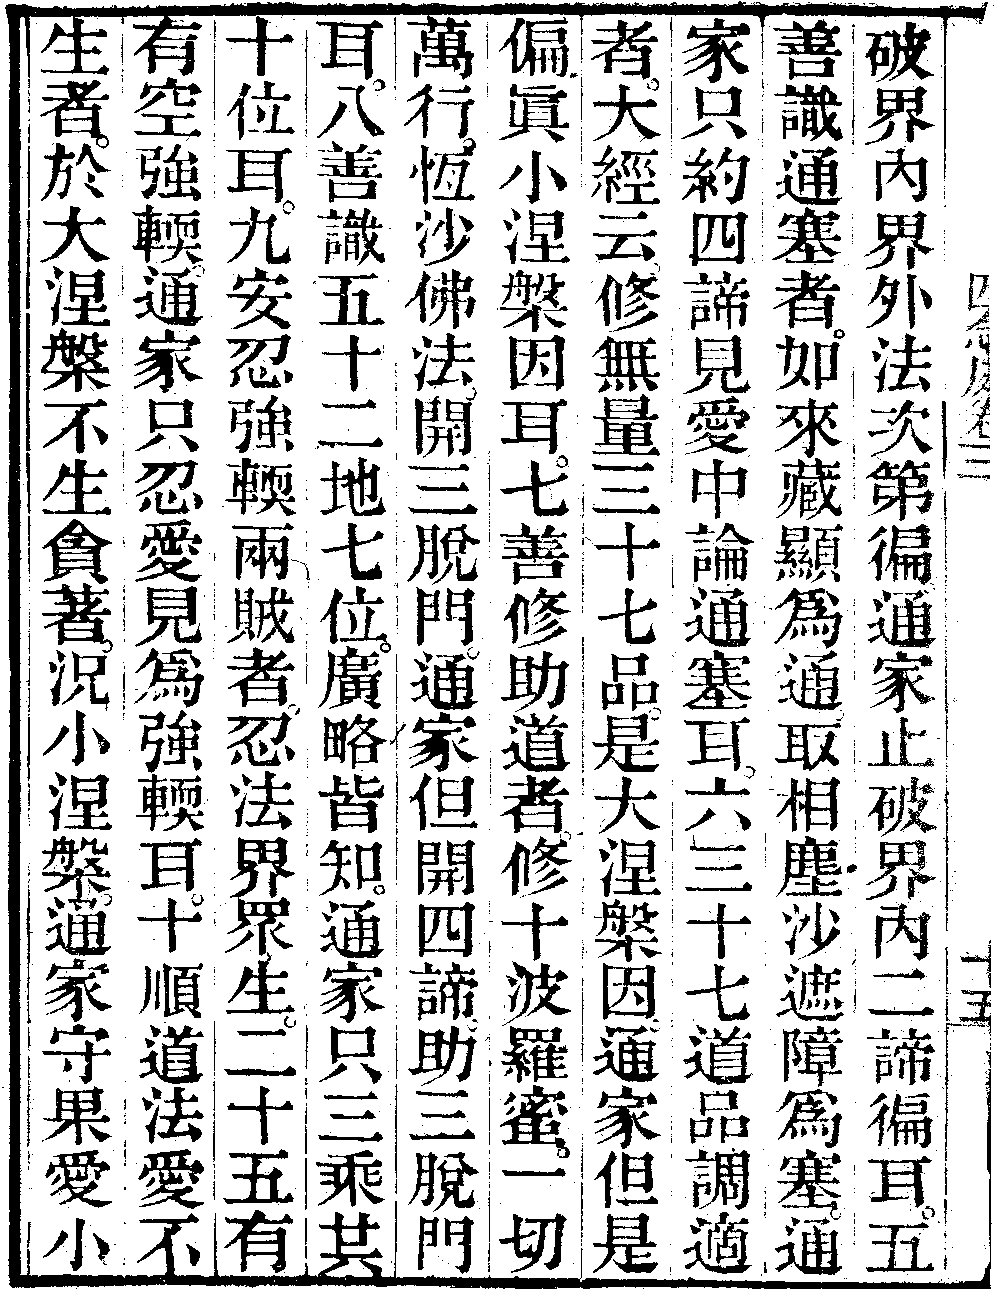 破界內界外法次第徧通家止破界內二諦徧耳。五
善識通塞者。如來藏顯為通取相塵沙遮障為塞。通
家只約四諦見愛中論通塞耳。六三十七道品調適
者。大經云。修無量三十七品。是大涅槃因。通家但是
偏眞小涅槃因耳。七善修助道者。修十波羅蜜。一切
萬行。恆沙佛法。開三脫門。通家但開四諦。助三脫門
耳。八善識五十二地七位。廣略皆知。通家只三乘共
十位耳。九安忍強輭兩賊者。忍法界眾生。二十五有
有空強輭。通家只忍愛見為強輭耳。十順道法愛不
生者。於大涅槃不生貪著。況小涅槃。通家守果愛小
十五